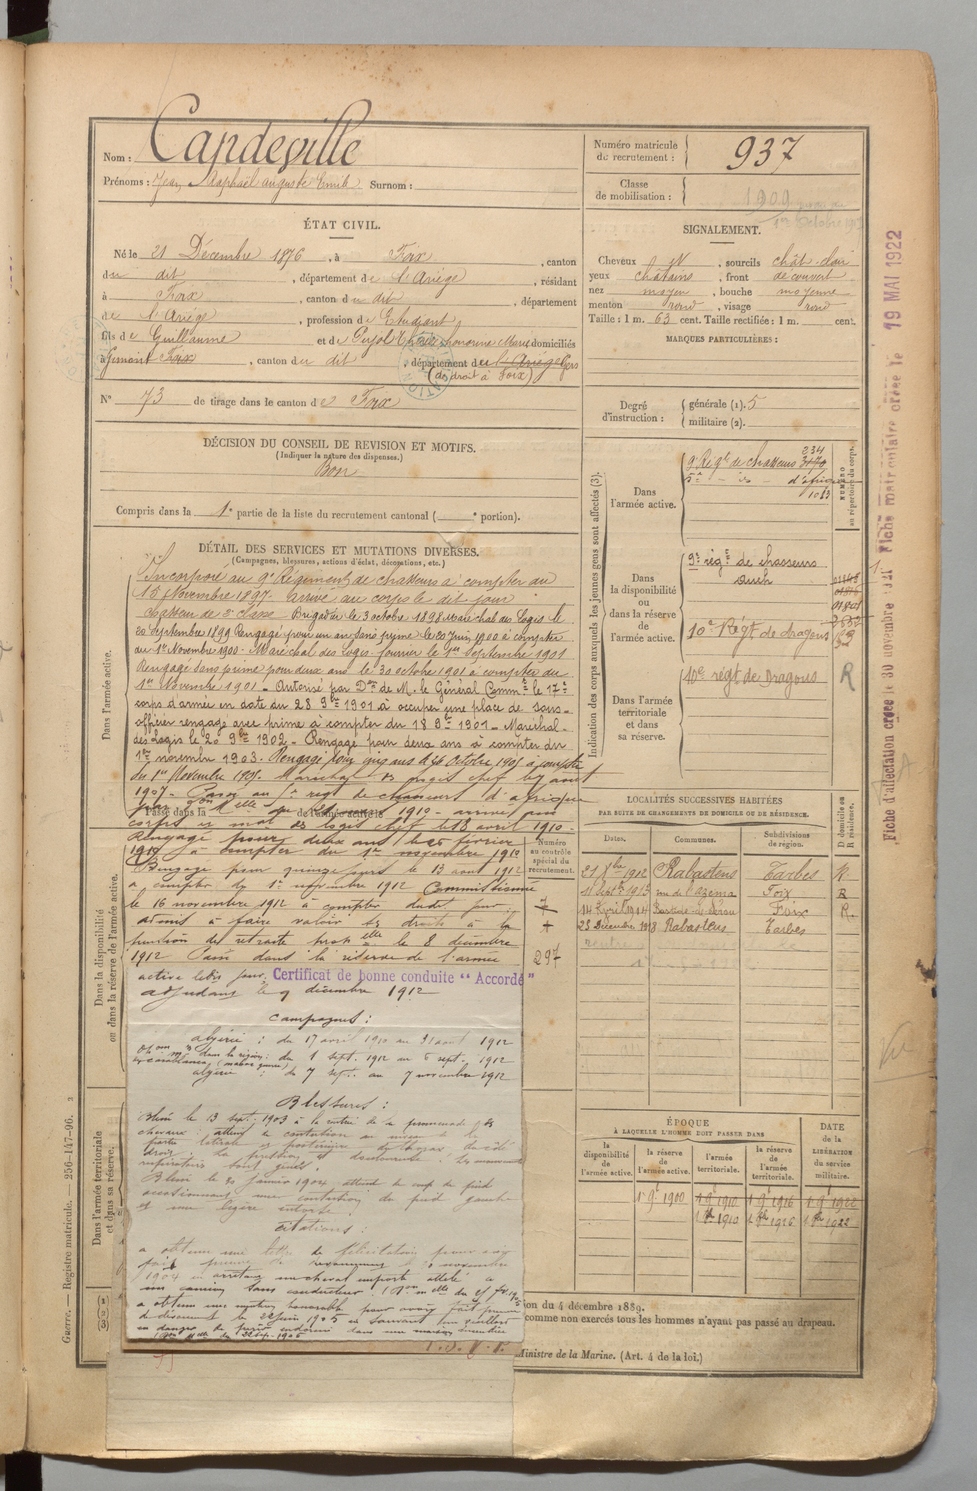 Nom : Capdeville
Prénoms : Jean Raphaël Auguste Emile Surnom :
Numéro matricule du recrutement : 937
Classe de mobilisation : 1909
ÉTAT CIVIL.
Né le 21 Décembre 1876, à Foix, canton
du dit, département de l'Ariège, résidant
à Foix, canton du dit, département
de l'Ariège, profession de Etudiant,
fils de Guillaume et de Pujol domiciliés
à Gimont Foix, canton du dit, département de l'Ariège Gers
(de droit à Foix)
N° 73 de tirage dans le canton de Foix
SIGNALEMENT.
Cheveux , sourcils chât. clair
yeux châtains, front découvert
nez moyen, bouche moyenne
menton rond, visage rond
Taille : 1 m. 63 cent. Taille rectifiée : 1 m. cent.
MARQUES PARTICULIÈRES :
Degré d'instruction : générale (1). 5
militaire (2).
DÉCISION DU CONSEIL DE REVISION ET MOTIFS.
(Indiquer la nature des dispenses.)
Bon
Compris dans la 1e partie de la liste du recrutement cantonal ( e portion).
DÉTAIL DES SERVICES ET MUTATIONS DIVERSES.
(Campagnes, blessures, actions d'éclat, décorations, etc.)
Dans l'armée active.
Incorporé au 9e Régiment de chasseurs à compter du
15 Novembre 1897. Arrivé au corps le dit jour
chasseur de 2e classe. Brigadier le 3 octobre 1898 Maréchal des Logis le
20 Septembre 1899 Rengagé pour un an sans prime le 20 Juin 1900 à compter
du 1er Novembre 1900. Maréchal des Logis fourrier le 1er Septembre 1901
Rengagé sans prime pour deux ans le 30 octobre 1901 à compter du
1er Novembre 1901 - Autorisé par Don de M. le Général Commt le 17e
corps d'armée en date du 28 9bre 1901 à occuper une place de sous-
officier rengagé avec prime à compter du 18 9bre 1901 - Maréchal
des Logis le 20 9bre 1902 - Rengagé pour deux ans à compter du
1er novembre 1903. Rengagé pour cinq ans le 26 Octobre 1905 à compter
du 1er Novembre 1905. Maréchal des logis chef
1907 - Passé au 5e régt de chasseurs d'afrique
1910 - arrivé au
corps et mal des logis chef le 18 avril 1910 -
Rengagé pour deux ans le février
1910 à compter du 1er novembre 1910
Rengagé pour quinze jours le 13 aout 1912
à compter du 1er novembre 1912 Commissionné
le 16 novembre 1912 à compter dudit jour,
admis à faire valoir ses droits à la
pension de retraite propelle le 8 décembre
1912 Passé dans la réserve de l'armée
active ledit jour. Certificat de bonne conduite "Accordé"
adjudant le 9 décembre 1912
Campagnes :
algérie : du 17 avril 1910 au 31 aout 1912
dans la région : du 1 sept. 1912 au 6 sept. 1912
algérie : du 7 sept. au 7 novembre 1912
Blessures :
Blessé le 13 sept. 1903 à la rentrée de la promenade des
chevaux : atteint de contusion au niveau de la
partie latérale et postérieure du thorax du côté
droit. La pression est douloureuse. Les mouvements
respiratoires sont gênés.
Blessé le 30 janvier 1904 atteint de coup de pied
occasionnant une contusion du pied gauche
et une légère entorse
Citations :
a obtenu une lettre de félicitations pour avoir
fait preuve de novembre
1904 en arrêtant un cheval emporté attelé à
un camion sans conducteur
a obtenu une mention honorable pour avoir fait preuve
de dévouement le 22 juin 1905 en sauvant un vieillard
en danger de dans une maison incendiée
Passé dans la de l'armée active le
Dans la disponibilité ou dans la réserve de l'armée active.
Dans l'armée territoriale et dans sa réserve.
Numéro au contrôle spécial du recrutement.
7
297
Indication des corps auxquels les jeunes gens sont affectés (3).
NUMÉRO au répertoire du corps.
Dans l'armée active.
9e Régt de chasseurs 234
5e - id - d'afrique
1013
Dans la disponibilité ou dans la réserve de l'armée active.
9e régt de chasseurs
Auch
10e Régt de dragons
Dans l'armée territoriale et dans sa réserve.
10e régt de Dragons R
LOCALITÉS SUCCESSIVES HABITÉES
PAR SUITE DE CHANGEMENTS DE DOMICILE OU DE RÉSIDENCE.
Dates. Communes. Subdivisions de région. D domicile ou R résidence.
21 Xbre 1912 Rabastens Tarbes R
1913 Foix R
14 Avril 1914 Labastide-de-Sérou Foix R.
28 Décembre 1918 Rabastens Tarbes
ÉPOQUE
À LAQUELLE L'HOMME DOIT PASSER DANS
DATE de la LIBÉRATION du service militaire.
la disponibilité de l'armée active. la réserve de l'armée active. l'armée territoriale. la réserve de l'armée territoriale.
1 9bre 1900 1 9bre 1910 1 9bre 1916 1 9bre 1922
1 8bre 1910 1 8bre 1916 1 8bre 1922
ion du 4 décembre 1889.
comme non exercés tous les hommes n'ayant pas passé au drapeau.
Ministre de la Marine. (Art. 4 de la loi.)
Guerre. — Registre matricule. — 256-147-96. 2
Fiche d'affectation créée le 30 novembre 1921 Fiche matriculaire créée le 19 MAI 1922